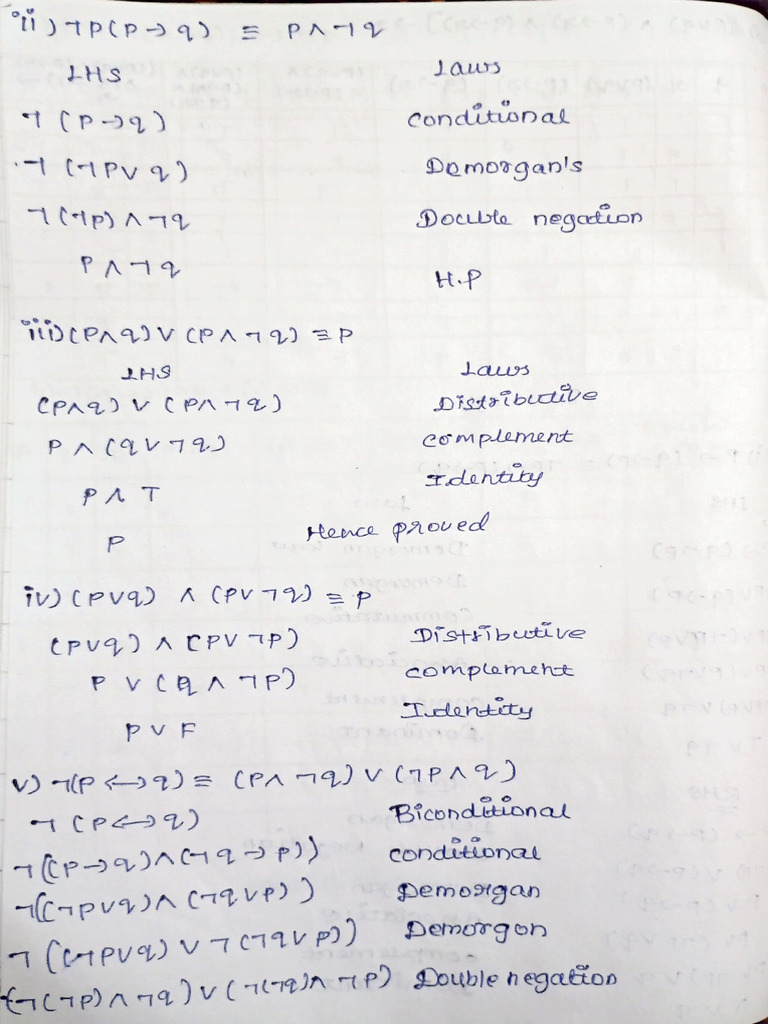 ii) ¬P(P→q) ≡ P∧¬q
LHS Laws
¬(P→q) conditional
¬(¬P∨q) Demorgan's
¬(¬P)∧¬q Double negation
P∧¬q H.P
iii)(P∧q)∨(P∧¬q) ≡P
LHS Laws
(P∧q)∨(P∧¬q) Distributive
P∧(q∨¬q) complement
P∧T Identity
P Hence proved
iv)(P∨q) ∧(P∨¬q) ≡P
(P∨q)∧(P∨¬P) Distributive
P∨(q∧¬P) complement
P∨F Identity
v) ¬(P↔q) ≡ (P∧¬q)∨(¬P∧q)
¬(P↔q) Biconditional
¬((P→q)∧(¬q→P)) conditional
¬((¬P∨q)∧(¬q∨P)) Demorgan
¬((¬P∨q)∨¬(¬q∨P)) Demorgon
(¬(¬P)∧¬q)∨(¬(¬q)∧¬P) Double negation